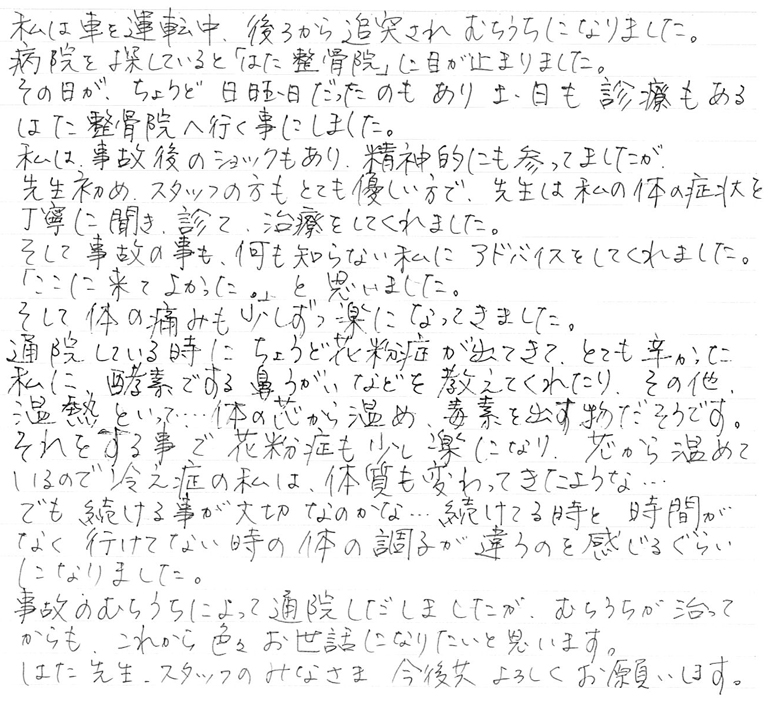 私は車を運転中、後ろから追突されむちうちになりました。
病院を探していると「はた整骨院」に目が止まりました。
その日が、ちょうど日曜日だったのもあり土・日も診療もある
はた整骨院へ行く事にしました。
私は、事故後のショックもあり、精神的にも参ってましたが、
先生初め、スタッフの方もとても優しい方で、先生は私の体の症状を
丁寧に聞き、診て、治療をしてくれました。
そして事故の事も、何も知らない私にアドバイスをしてくれました。
「ここに来てよかった。」と思いました。
そして体の痛みも少しずつ楽になってきました。
通院している時にちょうど花粉症が出てきて、とても辛かった
私に、酵素でする鼻うがいなどを教えてくれたり、その他、
温熱といって…体の芯から温め、毒素を出す物だそうです。
それをする事で花粉症も少し楽になり、芯から温めて
いるので冷え症の私は、体質も変わってきたような…
でも続ける事が大切なのかな…続けてる時と時間が
なく行けてない時の体の調子が違うのを感じるぐらい
になりました。
事故のむちうちによって通院しだしましたが、むちうちが治って
からも、これから色々お世話になりたいと思います。
はた先生、スタッフのみなさま 今後共よろしくお願いします。